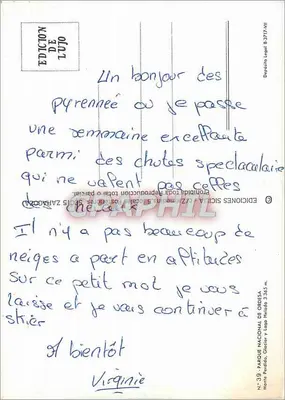 EDICION
DE
LUJO
Un bonjour des
pyrenneé ou je passe
une semmaine excellante
parmi des chutes spectaculaire
qui ne valent pas celles
des chevals
Il n'y a pas beaucoup de
neiges a part en altitudes
Sur ce petit mot je vous
laisse et je vais continuer à
skier
A bientôt
Virginie
Depósito Legal B-
EDICIONES SICILIA
Prohibida toda reproducción total o parcial
N.° 39 - PARQUE NACIONAL DE ORDESA
Monte Perdido, Glaciar y Lago Helado 3.253 m.